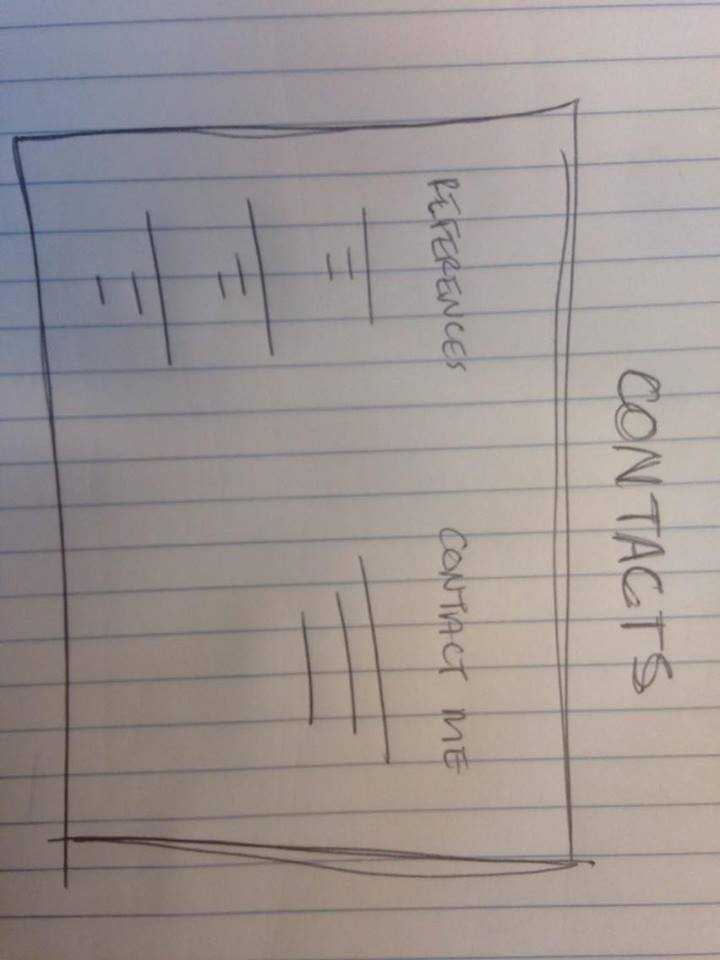 CONTACTS
REFERENCES
CONTACT ME